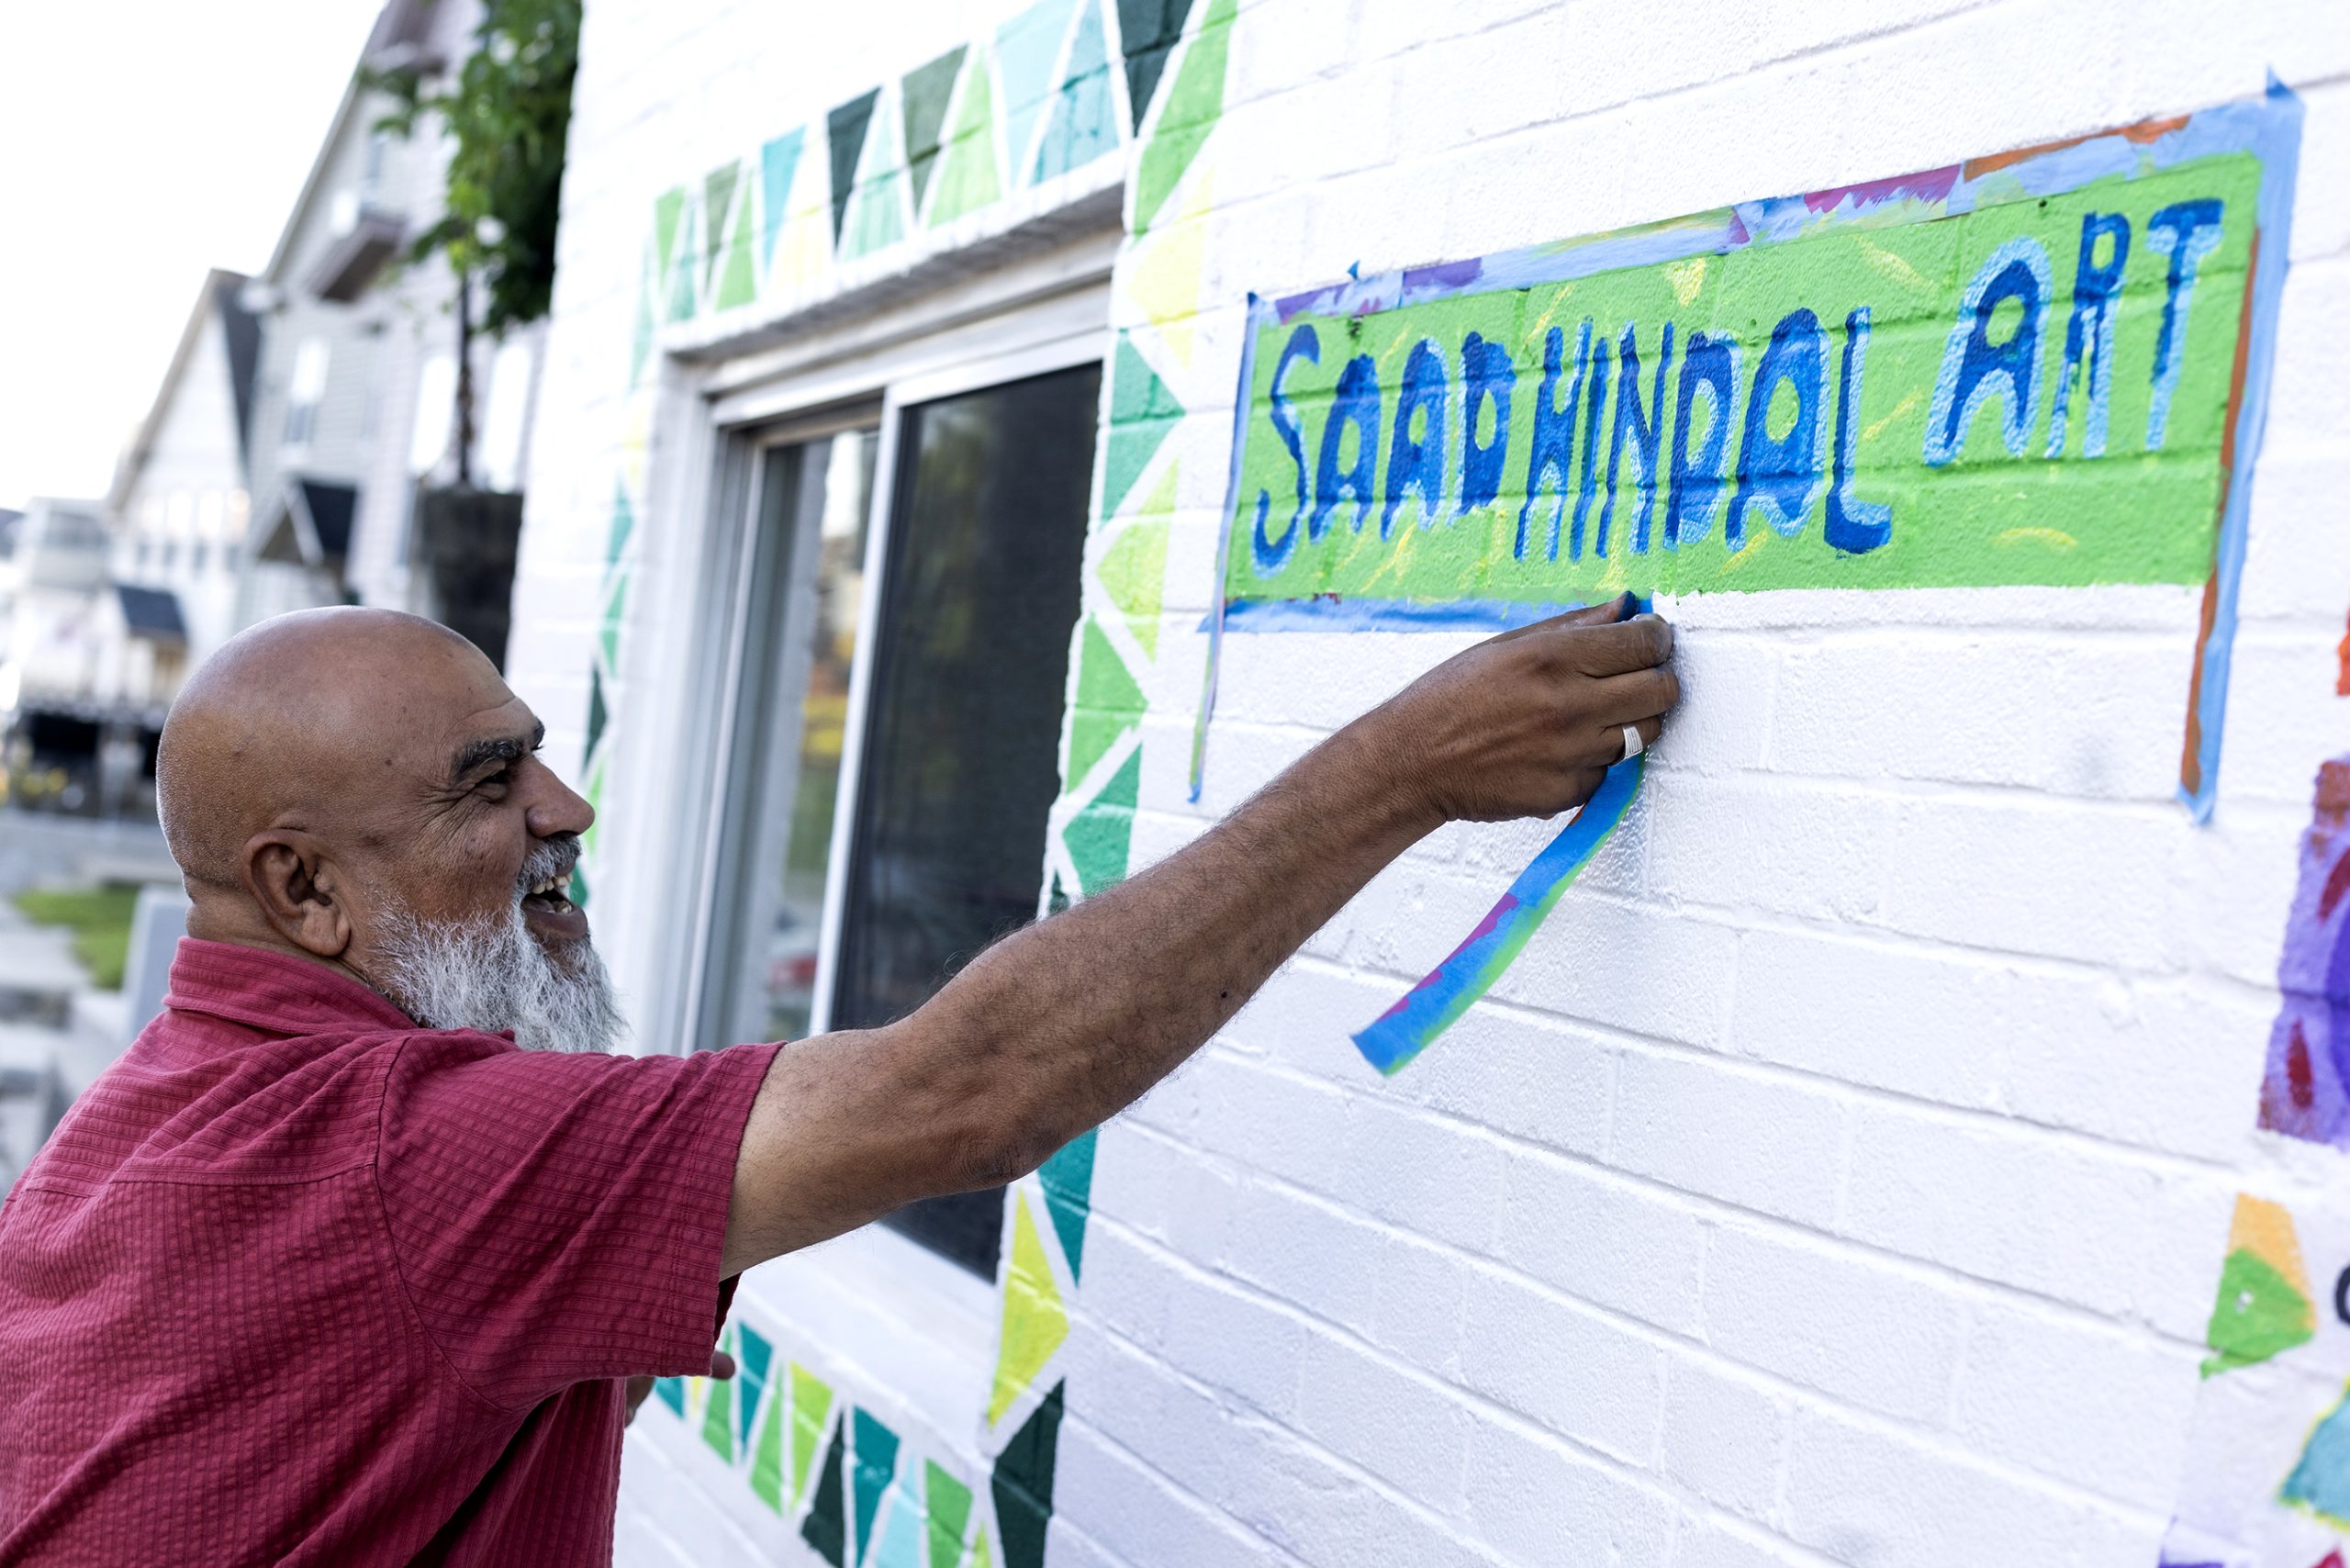 SAADHINDAL ART